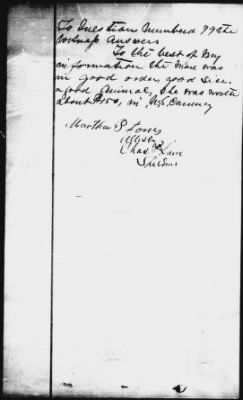 To Question Numbered 79 the
Witness Answers
To the best of my
information the Mare was
in good order, good size,
a good animal, She was worth
about $150, in U.S. Currency
Martha S
Attest
Chas